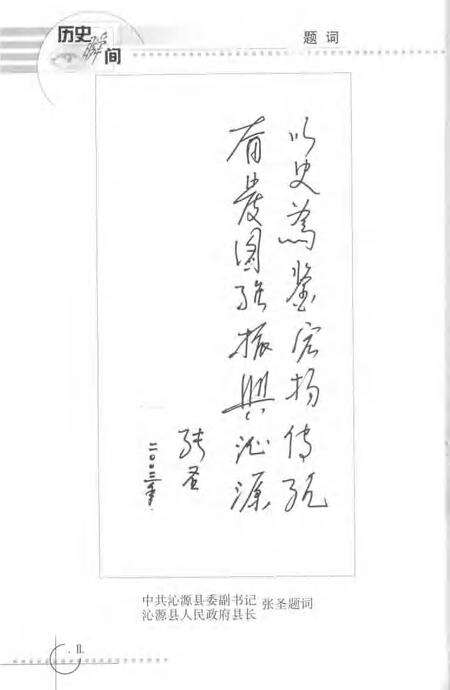 历史瞬间
题 词
以史為鉴宏扬传统
奋發图强振興沁源
张圣
二〇〇三年
中共沁源县委副书记
沁源县人民政府县长
张圣题词
· II ·